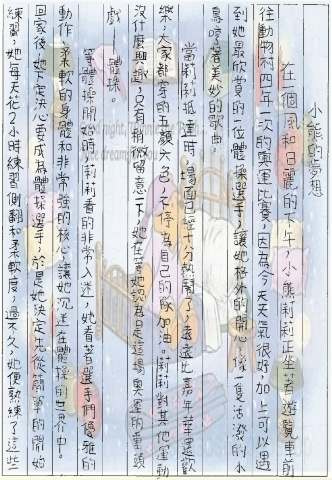 小熊的夢想
在一個風和日麗的下午，小熊莉莉正坐著遊覽車前
往動物村四年一次的奧運比賽，因為今天天氣很好，加上可以遇
到她最欣賞的一位體操選手，讓她格外的開心，像一隻活潑的小
鳥哼著美妙的歌曲。
當莉莉抵達時，場面已經十分熱鬧了，遠遠比嘉年華還歡
樂，大家都穿的五顏六色，不停為自己的隊加油。莉莉對其他運動
沒什麼興趣，只有稍微留意一下，她在等她認為只是這場奧運的重頭
戲——體操。
等體操開始時，莉莉看的非常入迷，她看著選手們優雅的
動作、柔軟的身體和非常強的核心，讓她沉迷在體操的世界中。
回家後，她下定決心要成為體操選手，於是她決定先從簡單的開始
練習，她每天花2小時練習側翻和柔軟度，過不久，她便熟練了這些